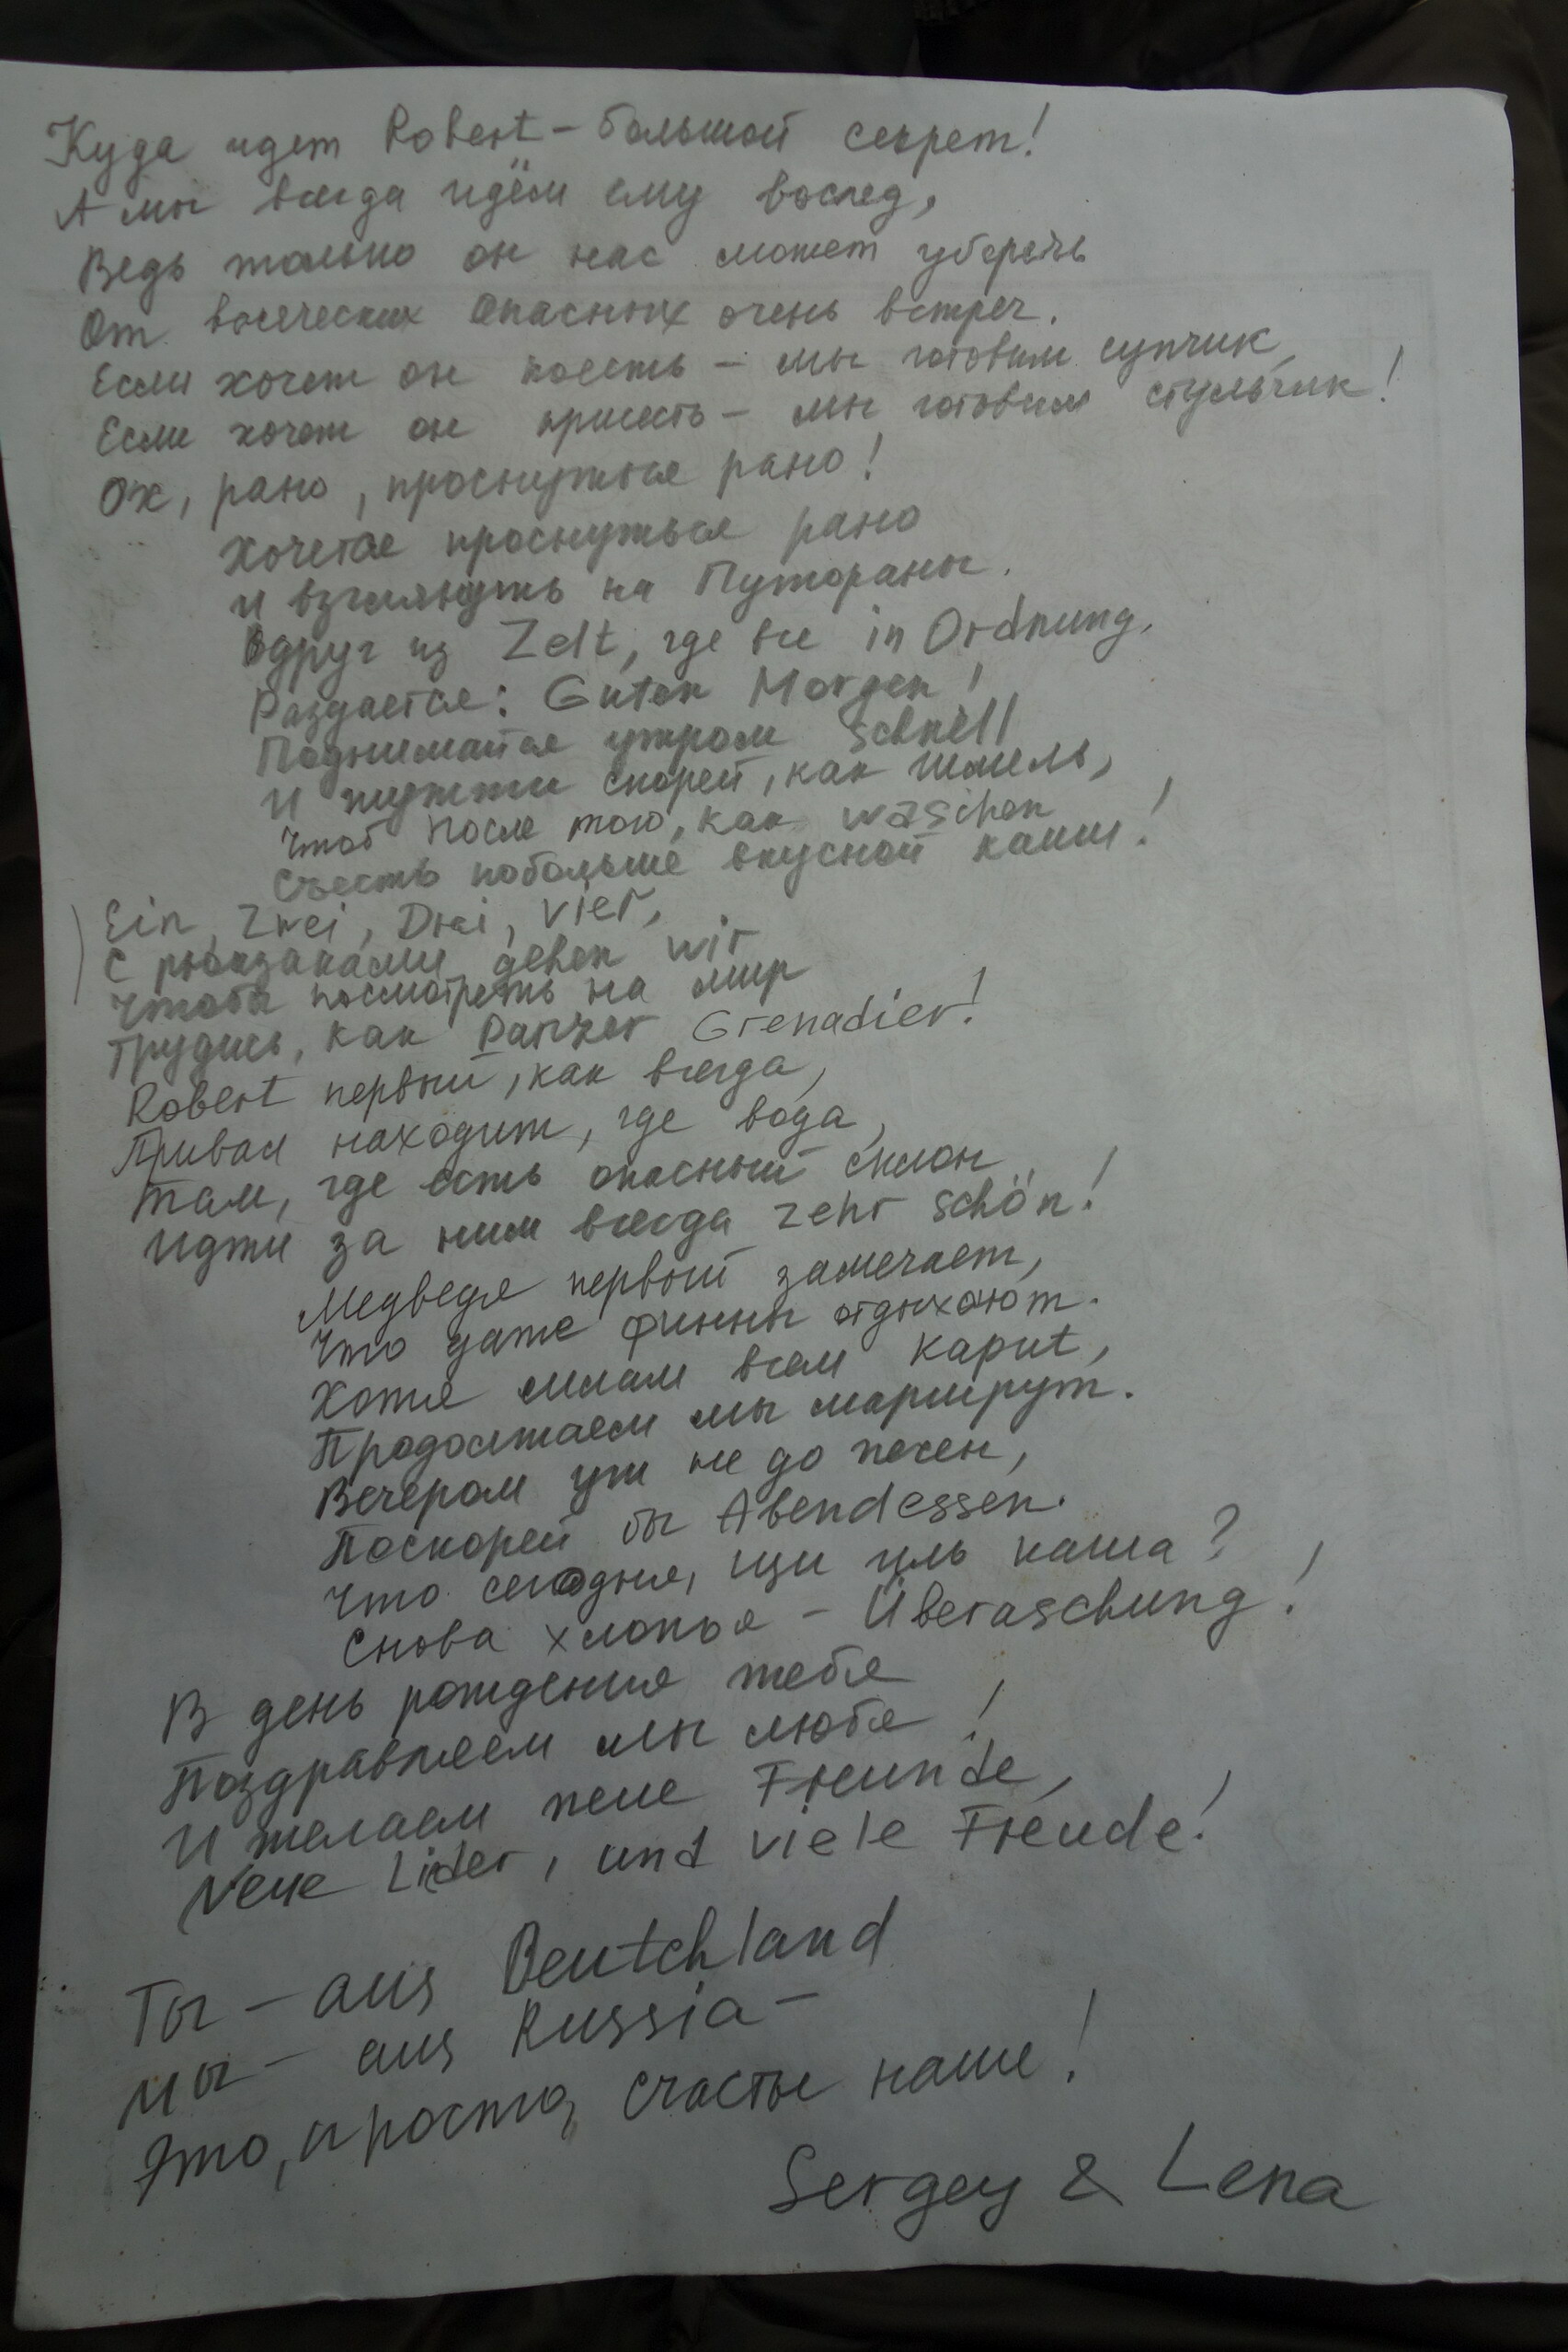 Куда идет Robert – большой секрет!
А мы всегда идём ему вослед,
Ведь только он нас может уберечь
От всяческих опасных очень встреч.
Если хочет он поесть – мы готовим супчик,
Если хочет он присесть – мы готовим стульчик!
Ох, рано, проснуться рано!
Хочется проснуться рано
И взглянуть на Путораны.
Вдруг из Zelt, где все in Ordnung,
Раздается: Guten Morgen!
Поднимайся утром schnell
И жужжи скорей, как шмель,
Чтоб после того, как waschen
Съесть побольше вкусной каши!
Ein, Zwei, Drei, Vier,
С рюкзаками gehen wir
Чтобы посмотреть на мир
Трудись, как Panzer Grenadier!
Robert первый, как всегда,
Привал находит, где вода,
Там, где есть опасный склон
Идти за ним всегда zehr schön!
Медведя первый замечает,
Что даже финны отдыхают.
Хотя силам всем kaput,
Продолжаем мы маршрут.
Вечером уж не до песен,
Поскорей бы Abendessen.
Что сегодня, щи иль каша?
Снова хлопья – Überaschung!
В день рождения тебя
Поздравляем мы любя!
И желаем неие Freunde,
Neue Lider, und viele Freude!
Ты – aus Deutchland
Мы – aus Russia –
Это, просто, счастье наше!
Sergey & Lena